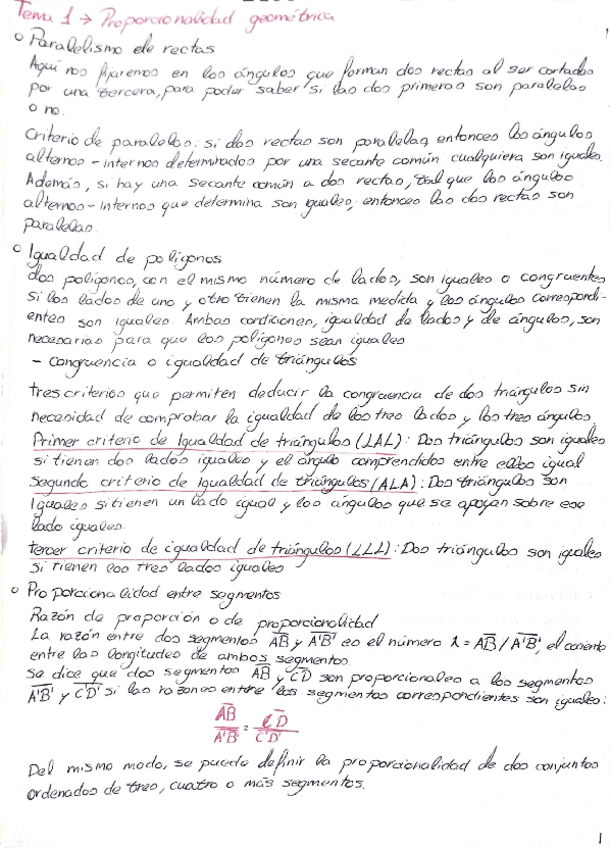 Tema 1 → Proporcionalidad geométrica
o Paralelismo de rectas
Aquí nos fijaremos en los ángulos que forman dos rectas al ser cortadas
por una tercera, para poder saber si las dos primeras son paralelas
o no.
Criterio de paralelas: si dos rectas son paralelas, entonces los ángulos
alternos-internos determinados por una secante común cualquiera son iguales.
Además, si hay una secante común a dos rectas, tal que los ángulos
alternos-internos que determina son iguales, entonces las dos rectas son
paralelas.
o Igualdad de polígonos
dos polígonos, con el mismo número de lados, son iguales o congruentes
si los lados de uno y otro tienen la misma medida y los ángulos correspondi-
entes son iguales. Ambas condiciones, igualdad de lados y de ángulos, son
necesarias para que los polígonos sean iguales
- Congruencia o igualdad de triángulos
tres criterios que permiten deducir la congruencia de dos triángulos sin
necesidad de comprobar la igualdad de los tres lados y los tres ángulos.
Primer criterio de Igualdad de triángulos (LAL): Dos triángulos son iguales
si tienen dos lados iguales y el ángulo comprendidos entre ellos igual
Segundo criterio de Igualdad de triángulos (ALA): Dos triángulos son
Iguales si tienen un lado igual y los ángulos que se apoyan sobre ese
lado iguales.
tercer criterio de igualdad de triángulos (LLL): Dos triángulos son iguales
si tienen los tres lados iguales
o Proporcionalidad entre segmentos
Razón de proporción o de proporcionalidad
La razón entre dos segmentos A̅B̅ y A̅'B̅' es el número λ = A̅B̅ / A̅'B̅', el cociente
entre las longitudes de ambos segmentos.
Se dice que dos segmentos A̅B̅ y C̅D̅ son proporcionales a los segmentos
A̅'B̅' y C̅'D̅' si las razones entre los segmentos correspondientes son iguales:
A̅B̅ / A̅'B̅' = C̅D̅ / C̅'D̅'
Del mismo modo, se puede definir la proporcionalidad de dos conjuntos
ordenados de tres, cuatro o más segmentos.
1